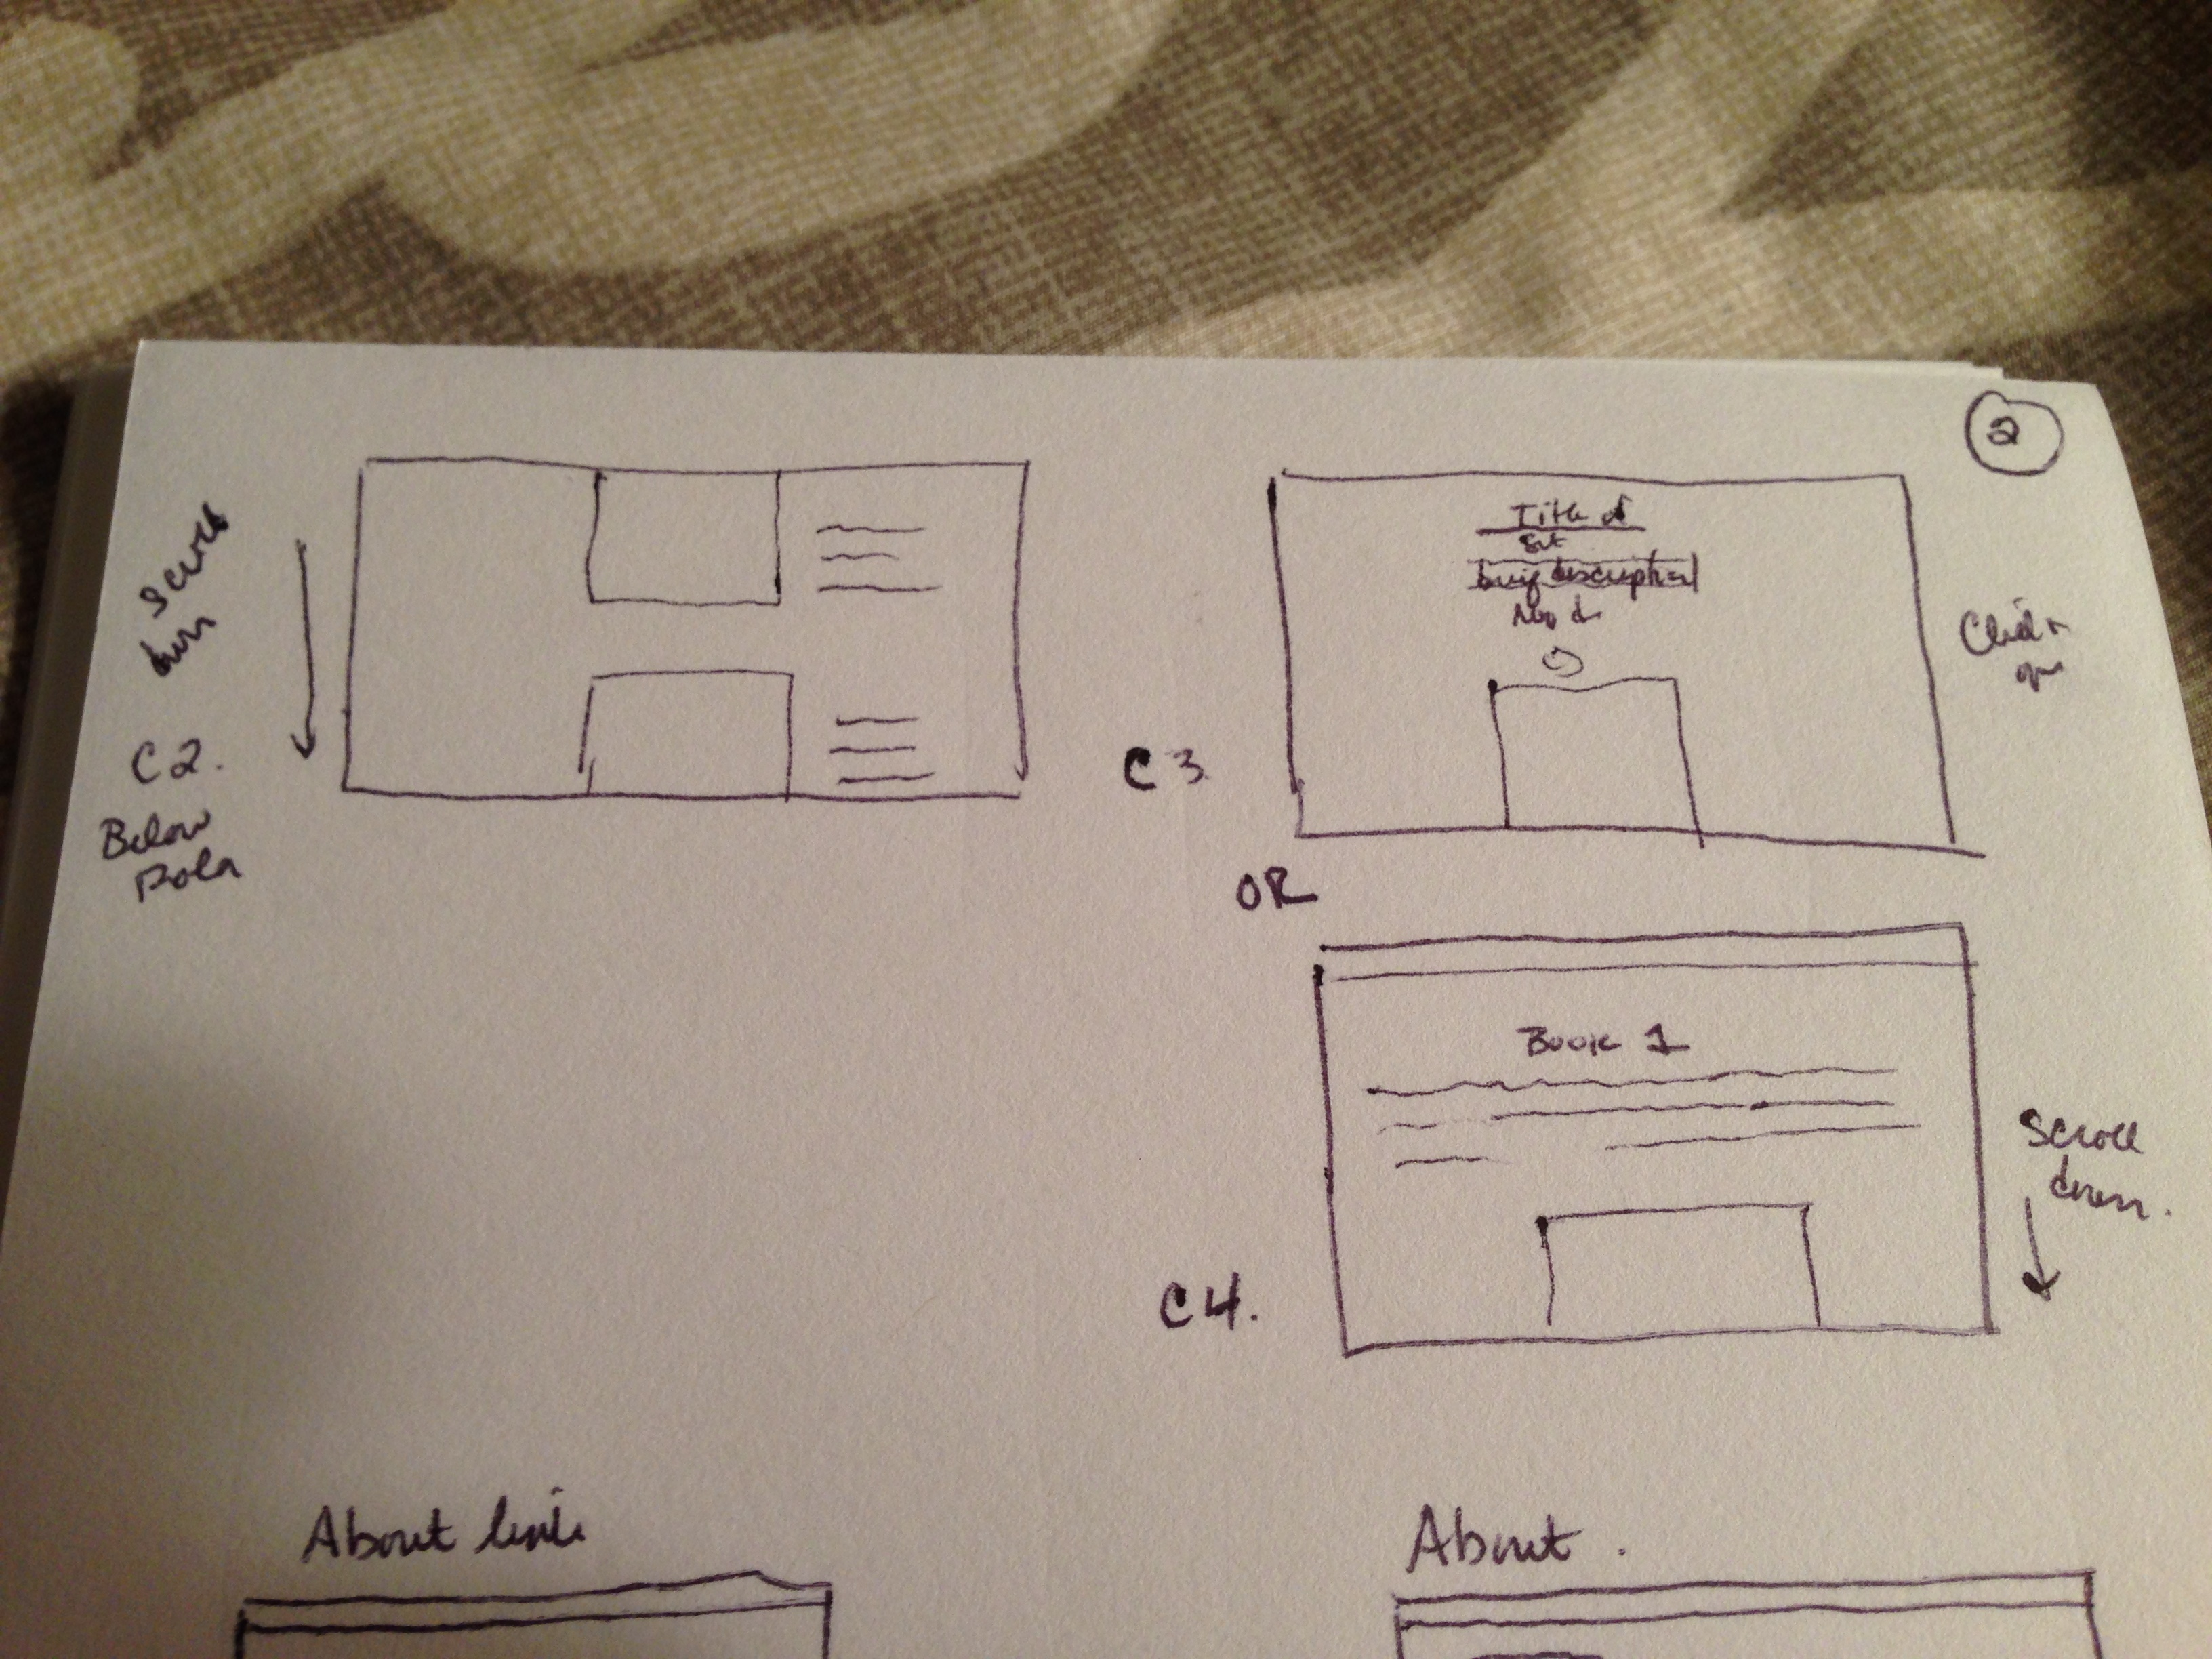 2
Scroll
down
C2.
Below
Title of
brief description
No. of
C3
OR
Book 1
Scroll
down.
C4.
About link
About.